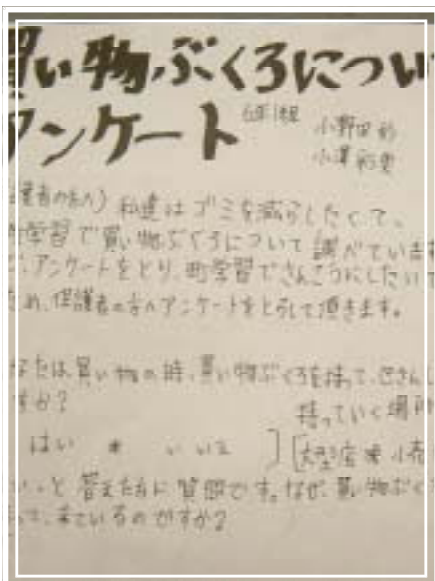 買い物ぶくろについ
アンケート
6年1組
小野田
小澤
護者の方へ) 私達はゴミを減らしたくて、
町学習で買い物ぶくろについて調べています
アンケートをとり、町学習でさんこうにしたいで
ため、保護者の方へアンケートをとらして頂きます。
なたは買い物の時、買い物ぶくろを持って
すか?
持っていく場所
はい * いいえ 〕〔大型店 * 小売
い、と答えた方に質問です。なぜ、買い物ぶく
って、来ているのですか?